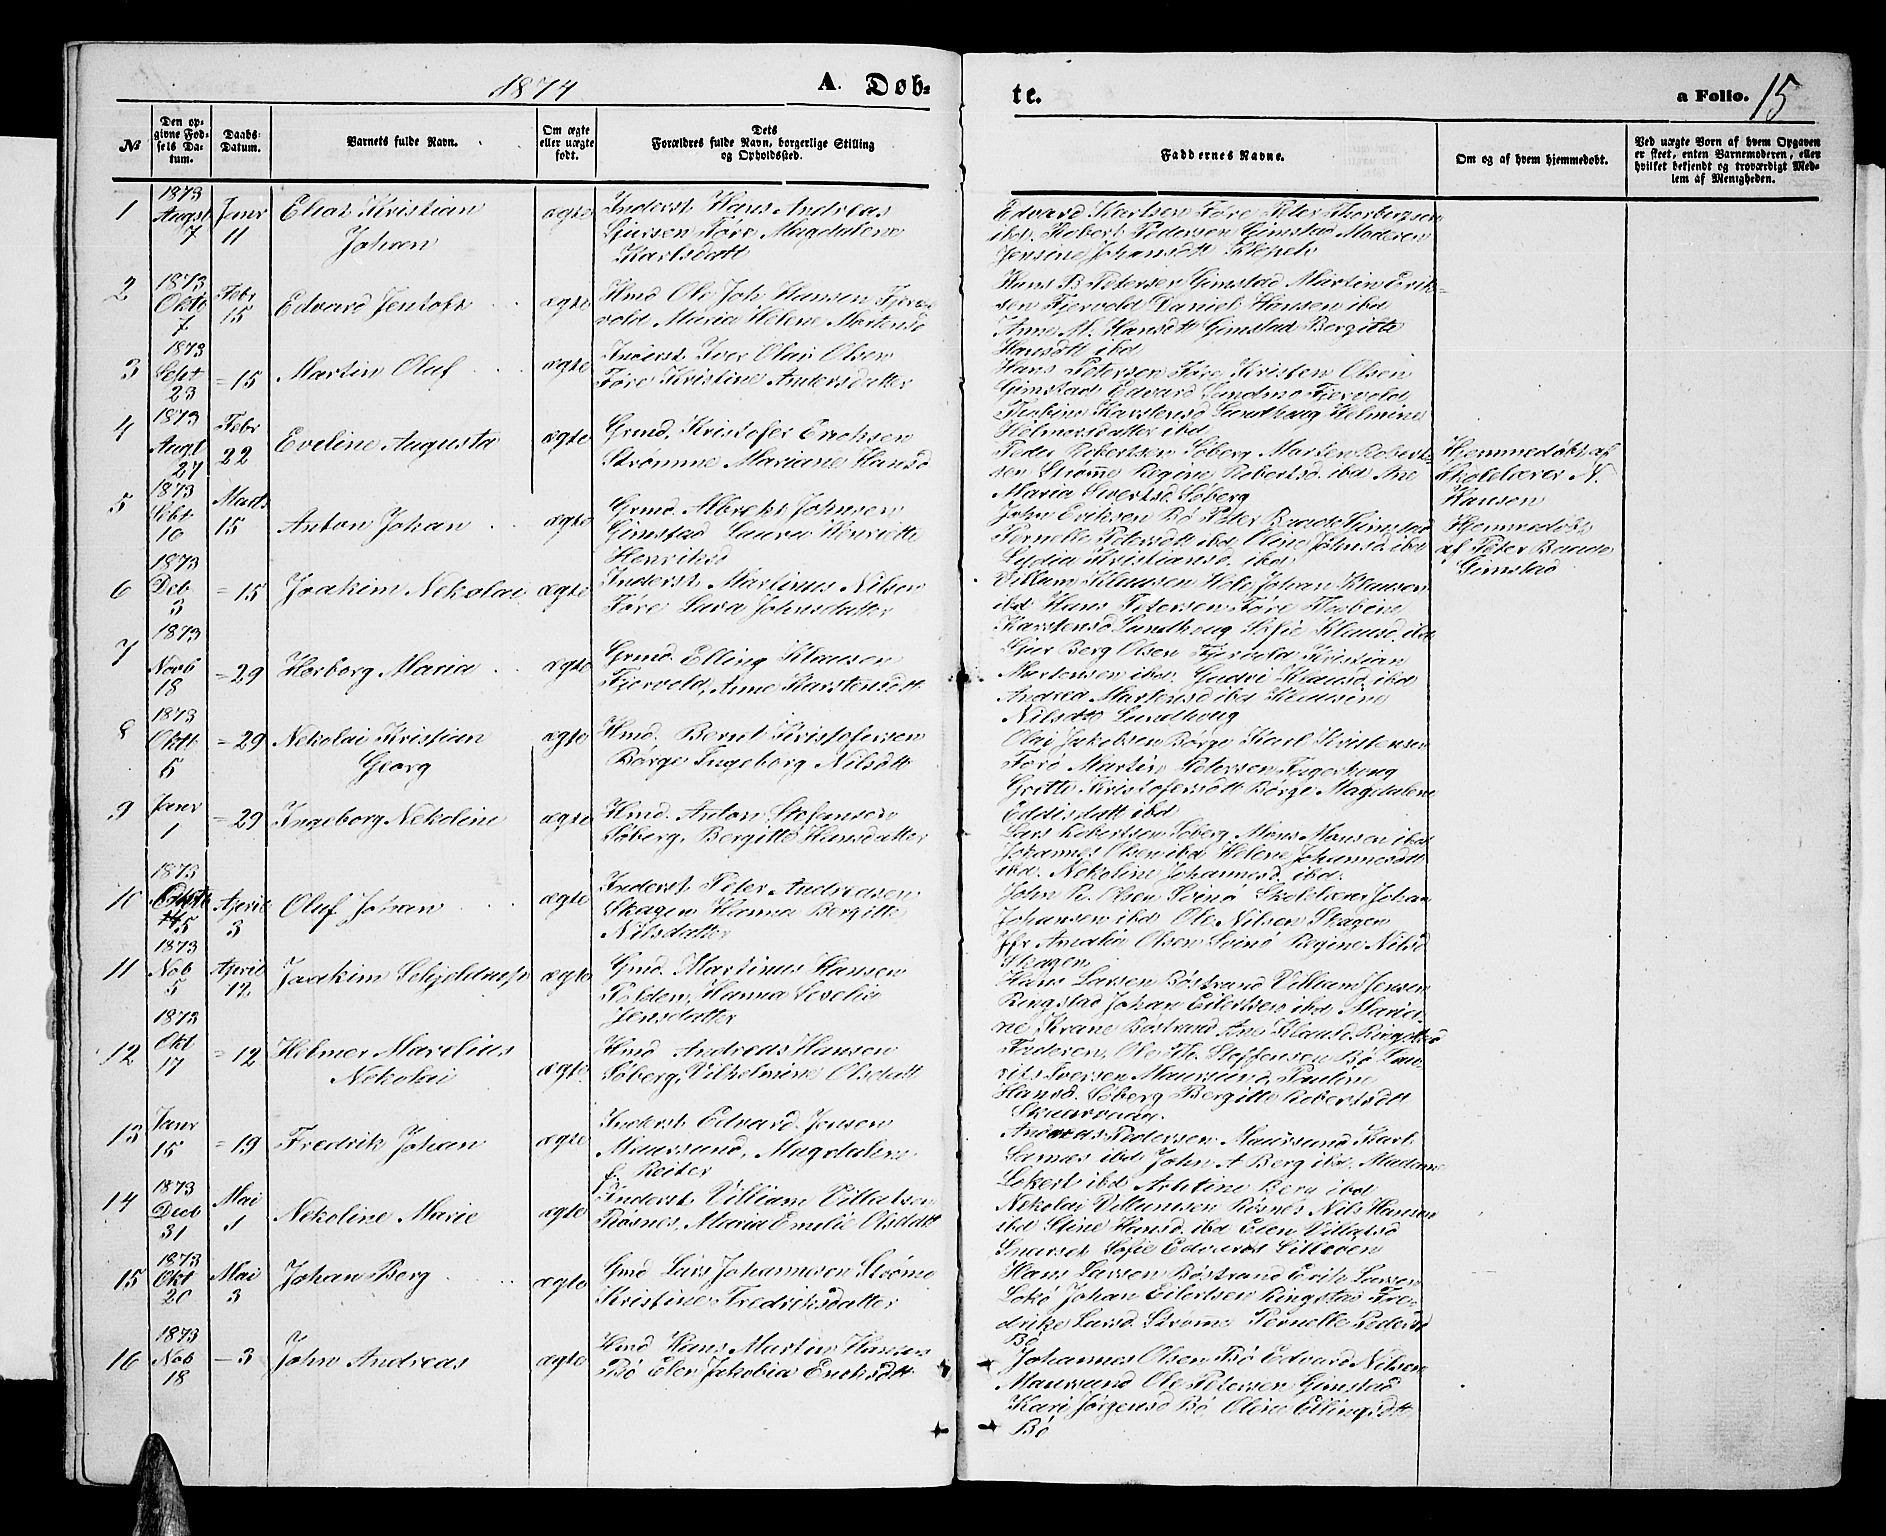 1874
A. Døb-
te.
a Folio. 15
№
Den op-
givne Fød-
sels Da-
tum.
Daabs-
Datum.
Barnets fulde Navn.
Om ægte
eller uægte
født.
Dets
Forældres fulde Navn, borgerlige Stilling
og Opholdssted.
Faddernes Navne.
Om og af hvem hjemmedøbt.
Ved uægte Børn af hvem Opgaven
er skeet, enten Barnemoderen, eller
hvilket bekjendt og troværdigt Med-
lem af Menigheden.
1
1873
Augst
7
Janr
11
Elias Kristian
Johan
ægte
Inderst Hans Andreas
Sjursen Føre Magdalene
Karlsdatt
Edvard Karlsen Føre Peter Thorbergsen
ibd. Robert Pedersen Gimstad Moderen
Jensine Johansdtt Klepeh
2
1873
Oktb
7
Febr
15
Edvard Jentoft
ægte
Hmd Ole Joh Hansen Fjær-
vold Maria Helene Mortensd
Hans B Petersen Gimstad Martin Erik-
sen Fjervold Daniel Hansen ibd
Anne M. Hansdtt Gimstad Bergitte
Hansdtt ibd
3
1873
Sept
23
= 15
Martin Oluf
ægte
Inderst Iver Olai Olsen
Føre Kristine Andersdatter
Hans Petersen Føre Kristen Olsen
Gimstad Edvard Sundmo Fjervold
Karstensd Sundhoug Helmine
Helmersdatter ibd
4
1873
Augt
27
Febr
22
Eveline Augusta
ægte
Grmd. Kristofer Eriksen
Strømme Mariane Hansd
Peder Robertsen Søberg Morten Robert-
sen Strøme Regine Robertsd. ibd Ane
Maria Sivertsd Søberg
Hjemmedøbt af
Skolelærer N.
Hansen
5
1873
Sebt
10
Marts
15
Anton Johan
ægte
Grmd. Albrekt Johnsen
Gimstad Laura Henriette
Henriksd
John Eriksen Bø Peter Gimstad
Pernelle Petersdtt ibd Oline Johnsd ibd
Lydia Kristiansd. ibd
Hjemmedøbt
af Peter
Gimstad
6
1873
Deb
3
= 15
Joakim Nekolai
ægte
Inderst Martinus Nilsen
Føre Sara Johnsdatter
Villum Klausen Hole Johan Klausen
ibd Hans Petersen Føre
Karstensd Sundhoug Sofie Klausd. ibd
7
1873
Novb
18
= 29
Herborg Maria
ægte
Grmd. Elling Klausen
Fjervold, Anne Karstensdtt
Sjur Berg Olsen Fjervold Kristian
Mortensen ibd. Klausd. ibd
Andrea Mortensd ibd
Nilsdtt Sundhoug
8
1873
Oktb
5
= 29
Nekolai Kristian
Georg
ægte
Hmd. Bernt Kristofersen
Børge Ingeborg Nilsdtt
Olai Jakobsen Børge Karl Kristensen
Føre Martin Petersen
Kristofersdtt Børge Magdalene
ibd
9
Janr
1
= 29
Ingeborg Nekoline
ægte
Hmd. Anton Stefansen
Søberg, Bergitte Hansdatter
Lars Robertsen Søberg Mons Monsen ibd
Johannes Olsen ibd Helene Johannesdtt
ibd. Nekoline Johannesd. ibd.
10
1873
5
April
3
Oluf Johan
ægte
Inderst Peter Andreasen
Skagen Hanna Bergitte
Nilsdatter
John R. Olsen Svinø Skolelærer Johan
Johansen ibd Ole Nilsen Skagen
Jfr Amalia Olsen Svinø Regine Nilsd
Skagen
11
1873
Nob
5
April
12
Joakim Schjelderup
ægte
Gmd. Martinus Hansen
Hanna Seselia
Jensdatter
Hans Larsen Bøstrand Villum Jensen
Ringstad Johan Eilertsen ibd Maria-
ne Krane Bøstrand Ane Klausd Ringstad
12
1873
Okt
17
= 12
Helmer Marelius
Nekolai
ægte
Hmd Andreas Hansen
Søberg, Vilhelmine Olsdatt
Faderen, Ole Th. Steffensen Bø Lau-
rits Iversen Maursund, Pauline
Hansd. Søberg Bergitte Robertsdtt
13
Janr
15
= 19
Fredrik Johan
ægte
Inderst Edvard Jensen
Maursund, Magdalene
f. Reiter
Andreas Pedersen Maursund Karl
ibd John A Berg ibd. Madame
Lekert ibd Berg ibd
14
1873
Decb
31
Mai
1
Nekoline Marie
ægte
Inderst Villum Villatsen
Røsnes, Maria Emilie Olsdatt
Nekolai Villumsen Røsnes Nils Hansen
ibd Stine Hansd. ibd Elen Villatsd
Snarset Sofie
15
1873
Okt
20
Mai
3
Johan Berg
ægte
Gmd Lars Johannesen Strøme
Kristine Fredriksdatter
Hans Larsen Bøstrand Erik Larsen
Johan Eilertsen Ringstad Fre-
drike Larsd. Strøme Pernelle Pedersd
Bø
16
1873
Nob
18
— 3
John Andreas
ægte
Hmd Hans Martin Hansen
Bø Elen Jakobia Eriksdtt
Johannes Olsen Bø Edvard Nilsen
Maursund Ole Petersen Gimstad
Kari Jørgensd Bø, Oline Ellingsdtt
Bø